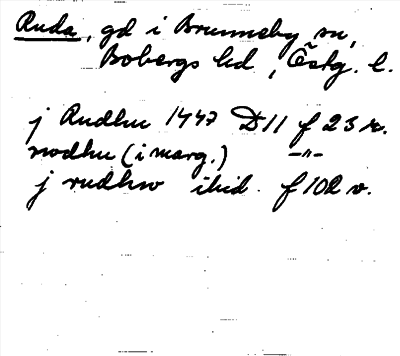 Ruda, gd i Brunneby sn,
Bobergs hd, Östg. l.
j Rudhu 1447 D11 f 23 r.
rodhu (i marg.) –"–
j rudhw ibid. f 102 v.